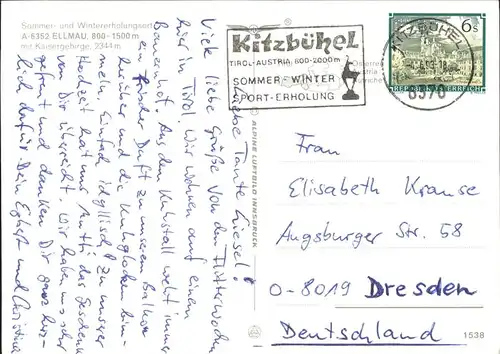 Sommer- und Wintererholungsort
A-6352 ELLMAU, 800-1500 m
mit Kaisergebirge, 2344 m
Kitzbühel
TIROL-AUSTRIA 800-2000 m
SOMMER - WINTER
SPORT-ERHOLUNG
KITZBÜHEL
6370
6 S
REPUBLIK ÖSTERREICH
Liebe Tante Liesel!
Viele liebe Grüße von den Flitterwochen
hier in Tirol! Wir wohnen auf einem
Bauernhof. Aus dem Kuhstall weht immer
ein frischer Duft zu unserem Balkon
herüber und die Kuhglocken bim-
meln. Einfach idyllisch! Zu unserer
Hochzeit hat uns Mutti das Geschenk
von Dir überreicht. Wir haben uns sehr
gefreut und danken Dir ganz herz-
lich dafür. Dein Egbert und Christine
ALPINE LUFTBILD INNSBRUCK
Frau
Elisabeth Krause
Augsburger Str. 58
O-8019 Dresden
Deutschland
1538